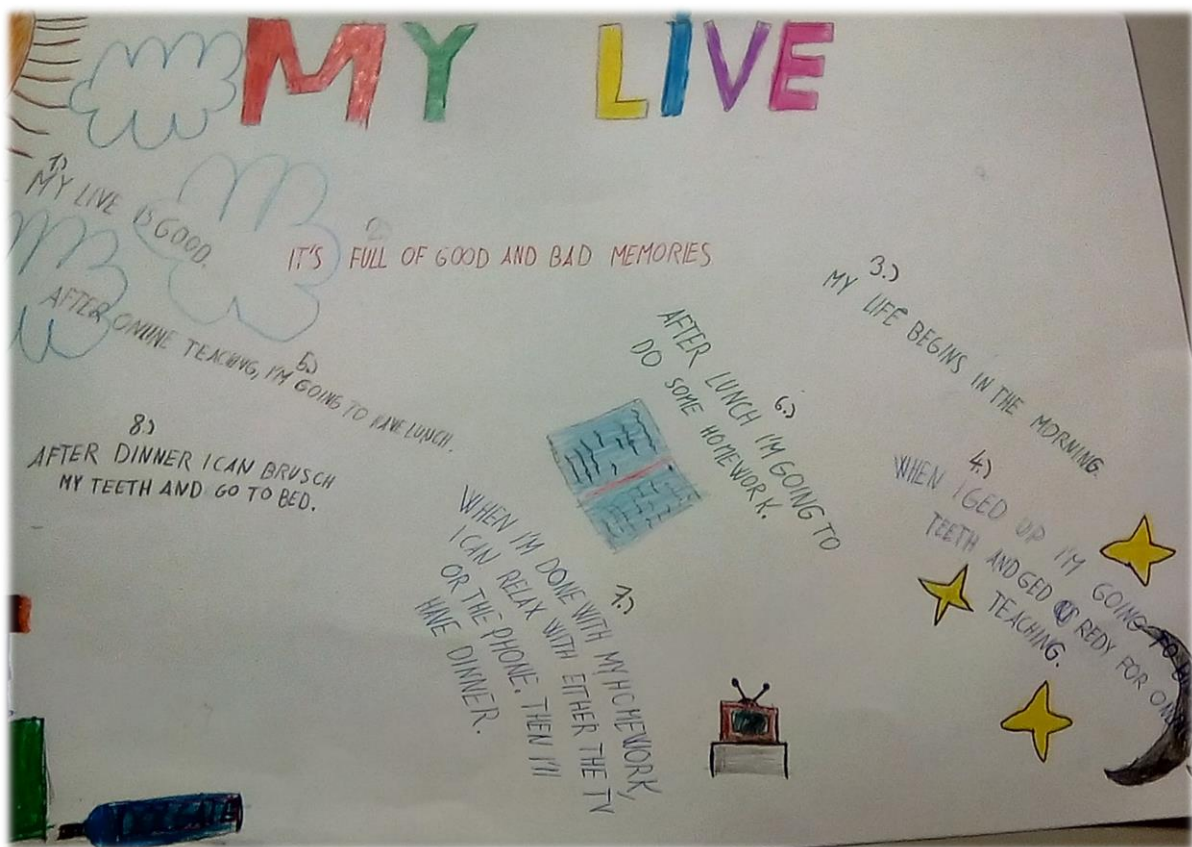 MY LIVE
1.)
MY LIVE IS GOOD.
2.)
IT'S FULL OF GOOD AND BAD MEMORIES
3.)
MY LIFE BEGINS IN THE MORNING.
4.)
WHEN I GED UP I'M GOING TO
TEETH AND GED REDY FOR
TEACHING.
5.)
AFTER ONLINE TEACHING, I'M GOING TO HAVE LUNCH.
6.)
AFTER LUNCH I'M GOING TO
DO SOME HOMEWORK.
7.)
WHEN I'M DONE WITH MY HOMEWORK,
I CAN RELAX WITH EITHER THE TV
OR THE PHONE. THEN I'll
HAVE DINNER.
8.)
AFTER DINNER I CAN BRUSCH
MY TEETH AND GO TO BED.
COLGATE